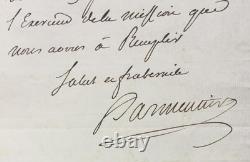 l'Exercice de la mission que
nous avons à Remplir
Salut et fraternité
Parmentier
ebay.com